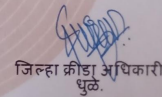 जिल्हा क्रीडा अधिकारी
धुळे.